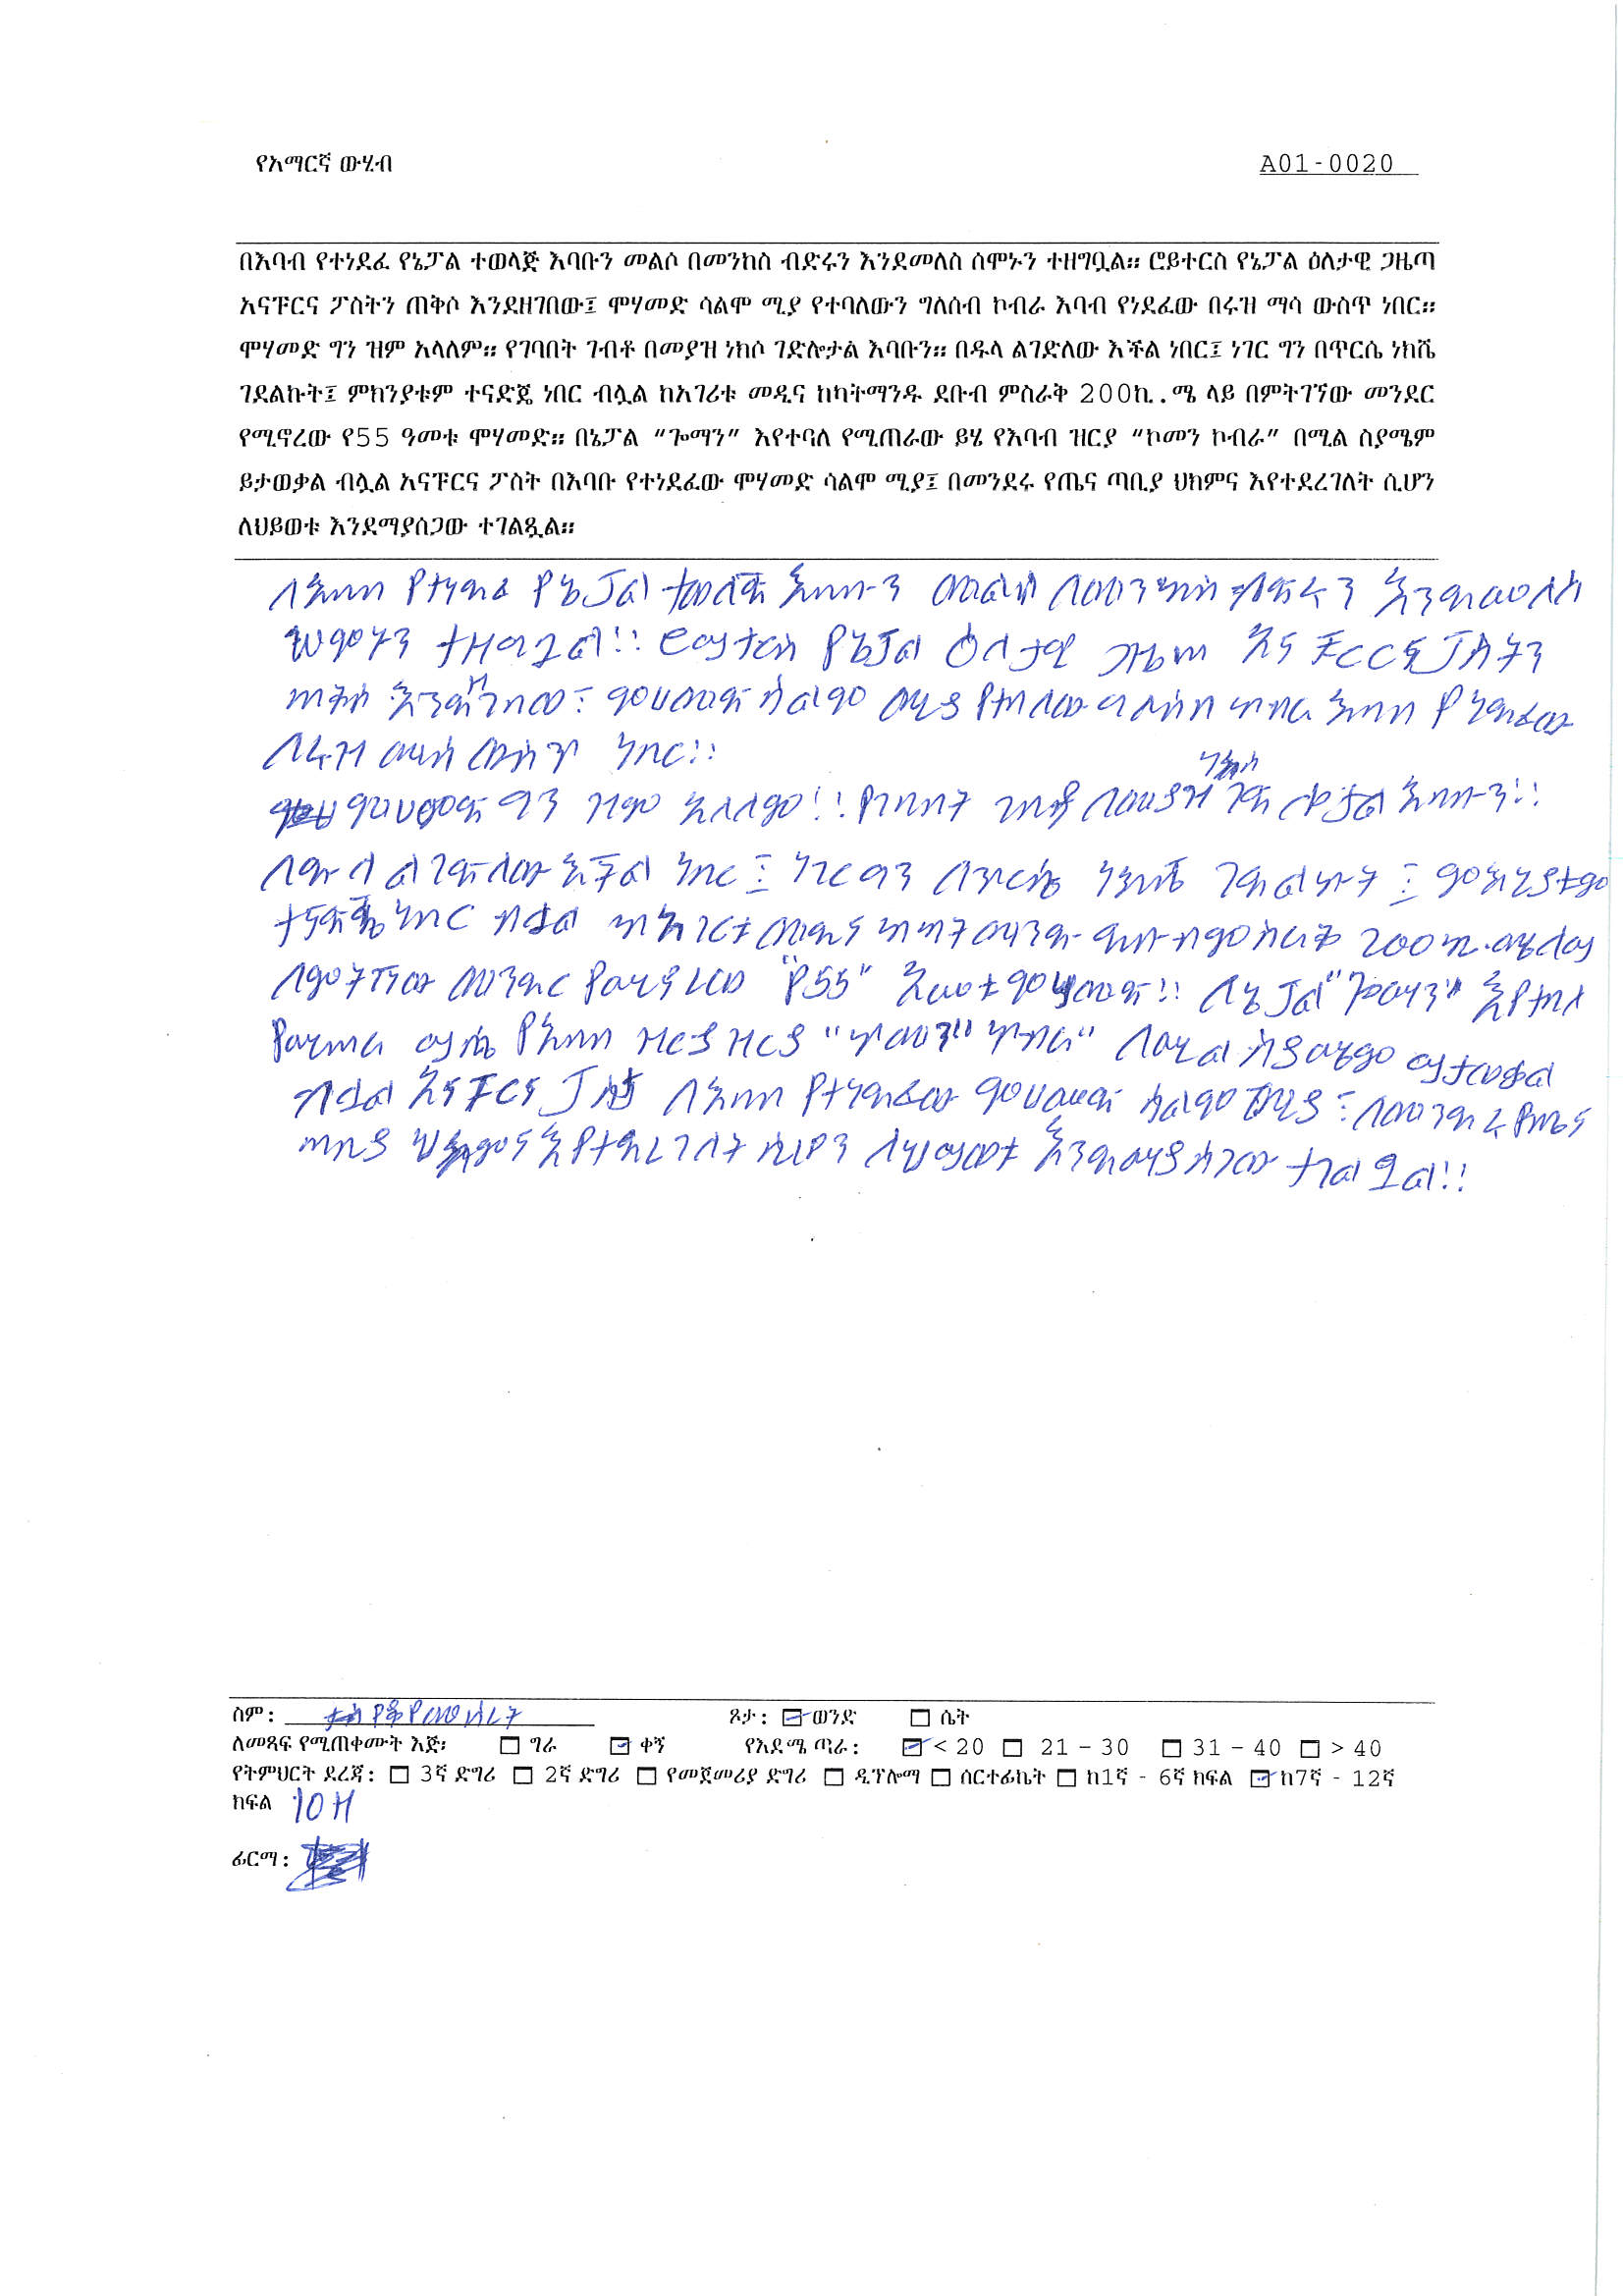 የአማርኛ ውሃብ
A01-0020
በእባብ የተነደፈ የኔፓል ተወላጅ እባቡን መልሶ በመንከስ ብድሩን እንደመለስ ሰሞኑን ተዘግቧል። ሮይተርስ የኔፓል ዕለታዊ ጋዜጣ
አናፑርና ፓስትን ጠቅሶ እንደዘገበው፤ ሞሃመድ ሳልሞ ሚያ የተባለውን ግለሰብ ኮብራ እባብ የነደፈው በሩዝ ማሳ ውስጥ ነበር።
ሞሃመድ ግን ዝም አላለም። የገባበት ገብቶ በመያዝ ነክሶ ገድሎታል እባቡን። በዱላ ልገድለው እችል ነበር፤ ነገር ግን በጥርሴ ነክሼ
ገደልኩት፤ ምክንያቱም ተናድጄ ነበር ብሏል ከአገሪቱ መዲና ከካትማንዱ ደቡብ ምስራቅ 200ኪ.ሜ ላይ በምትገኘው መንደር
የሚኖረው የ55 ዓመቱ ሞሃመድ። በኔፓል “ጐማን” እየተባለ የሚጠራው ይሄ የእባብ ዝርያ “ኮመን ኮብራ” በሚል ስያሜም
ይታወቃል ብሏል አናፑርና ፓስት በእባቡ የተነደፈው ሞሃመድ ሳልሞ ሚያ፤ በመንደሩ የጤና ጣቢያ ህክምና እየተደረገለት ሲሆን
ለህይወቱ እንደማያሰጋው ተገልጿል።
በእባብ የተነደፈ የኔፓል ተወላጅ እባቡን መልሶ በመንከስ ብድሩን እንደመለስ
ሰሞኑን ተዘግቧል። ሮይተርስ የኔፓል ዕለታዊ ጋዜጣ
ጠቅሶ እንደዘገበው፤ ሞሃመድ ሳልሞ ሚያ የተባለው ግለሰብ ኮብራ እባብ የነደፈው
በሩዝ ማሳ ውስጥ ነበር።
ሞሃመድ ግን ዝም አላለም። የገባበት ገብቶ በመያዝ ነክሶ እባቡን።
በዱላ ልገድለው እችል ነበር፤ ነገር ግን በጥርሴ ነክሼ ገደልኩት፤ ምክንያቱም
ተናድጄ ነበር ብሏል ከአገሪቱ መዲና ከካትማንዱ ደቡብ ምስራቅ 200ኪ.ሜ ላይ
በምትገኘው መንደር "የ55" አመቱ ሞሃመድ። በኔፓል "ጐማን" እየተባለ
ይሄ የእባብ ዝርያ ዝርያ "ኮመን" ኮብራ" በሚል ስያሜም ይታወቃል
ብሏል አናፑርና በእባብ የተነደፈው ሞሃመድ ሳልሞ ሚያ፤ በመንደሩ የጤና
ጣቢያ ህክምና እየተደረገለት ሲሆን ለህይወቱ እንደማያሰጋው ተገልጿል።
ስም:
ጾታ: ወንድ ሴት
ለመጻፍ የሚጠቀሙት እጅ፡ ግራ ቀኝ የእድሜ ጣራ: < 20 21 - 30 31 - 40 > 40
የትምህርት ደረጃ: 3ኛ ድግሪ 2ኛ ድግሪ የመጀመሪያ ድግሪ ዲፕሎማ ሰርተፊኬት ከ1ኛ - 6ኛ ክፍል ከ7ኛ - 12ኛ
ክፍል 10H
ፊርማ: